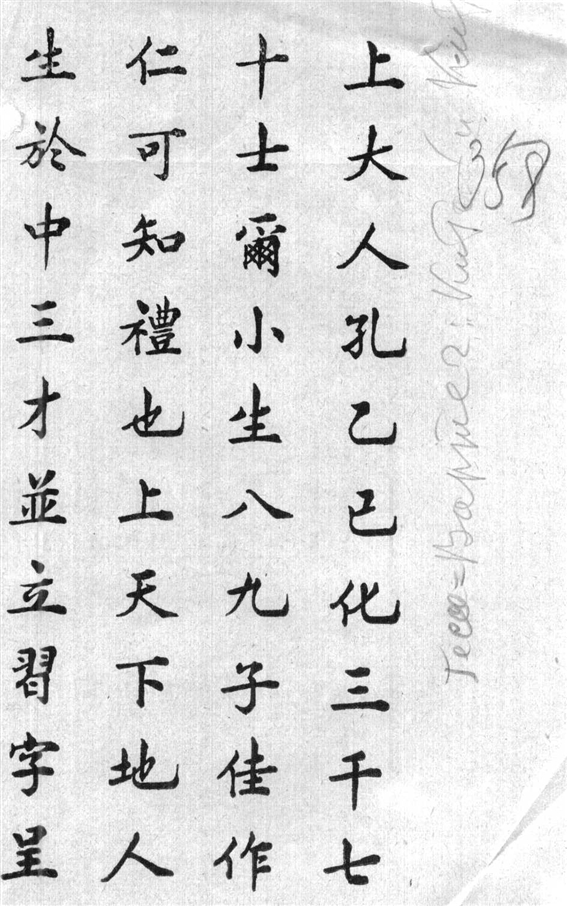 上大人孔乙已化三千七
十士爾小生八九子佳作
仁可知禮也上天下地人
生於中三才並立習字呈
358